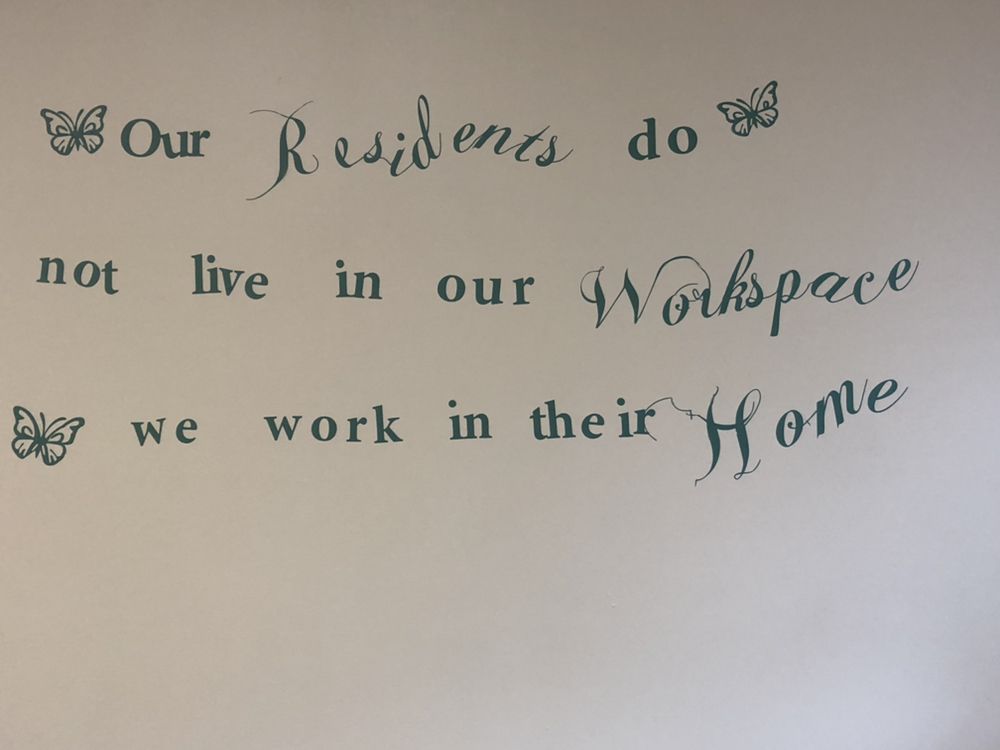 Our Residents do
not live in our Workspace
we work in their Home